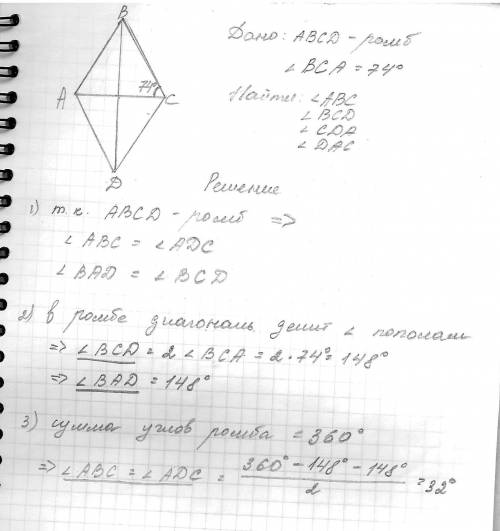 B
Дано: ABCD - ромб
∠BCA = 74°
A 74° C
Найти: ∠ABC
∠BCD
∠CDA
∠DAC
D
Решение
1) т.к. ABCD - ромб =>
∠ABC = ∠ADC
∠BAD = ∠BCD
2) в ромбе диагональ делит ∠ пополам
=> ∠BCD = 2∠BCA = 2·74° = 148°
=> ∠BAD = 148°
3) сумма углов ромба = 360°
=> ∠ABC = ∠ADC = (360° - 148° - 148°)/2 = 32°